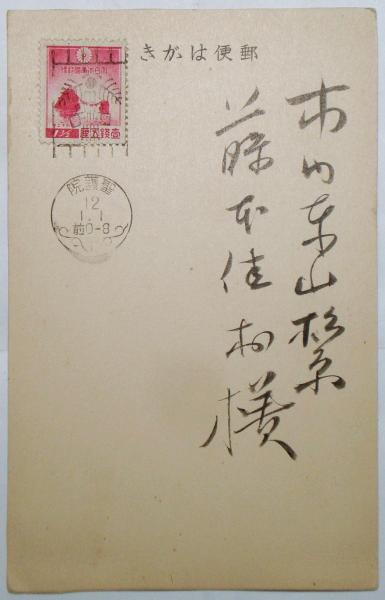 郵便はがき
大日本帝国郵便
1½ 壹銭五厘
聖護院
12
1.1
前0-8
市内東山
藤本佳村様